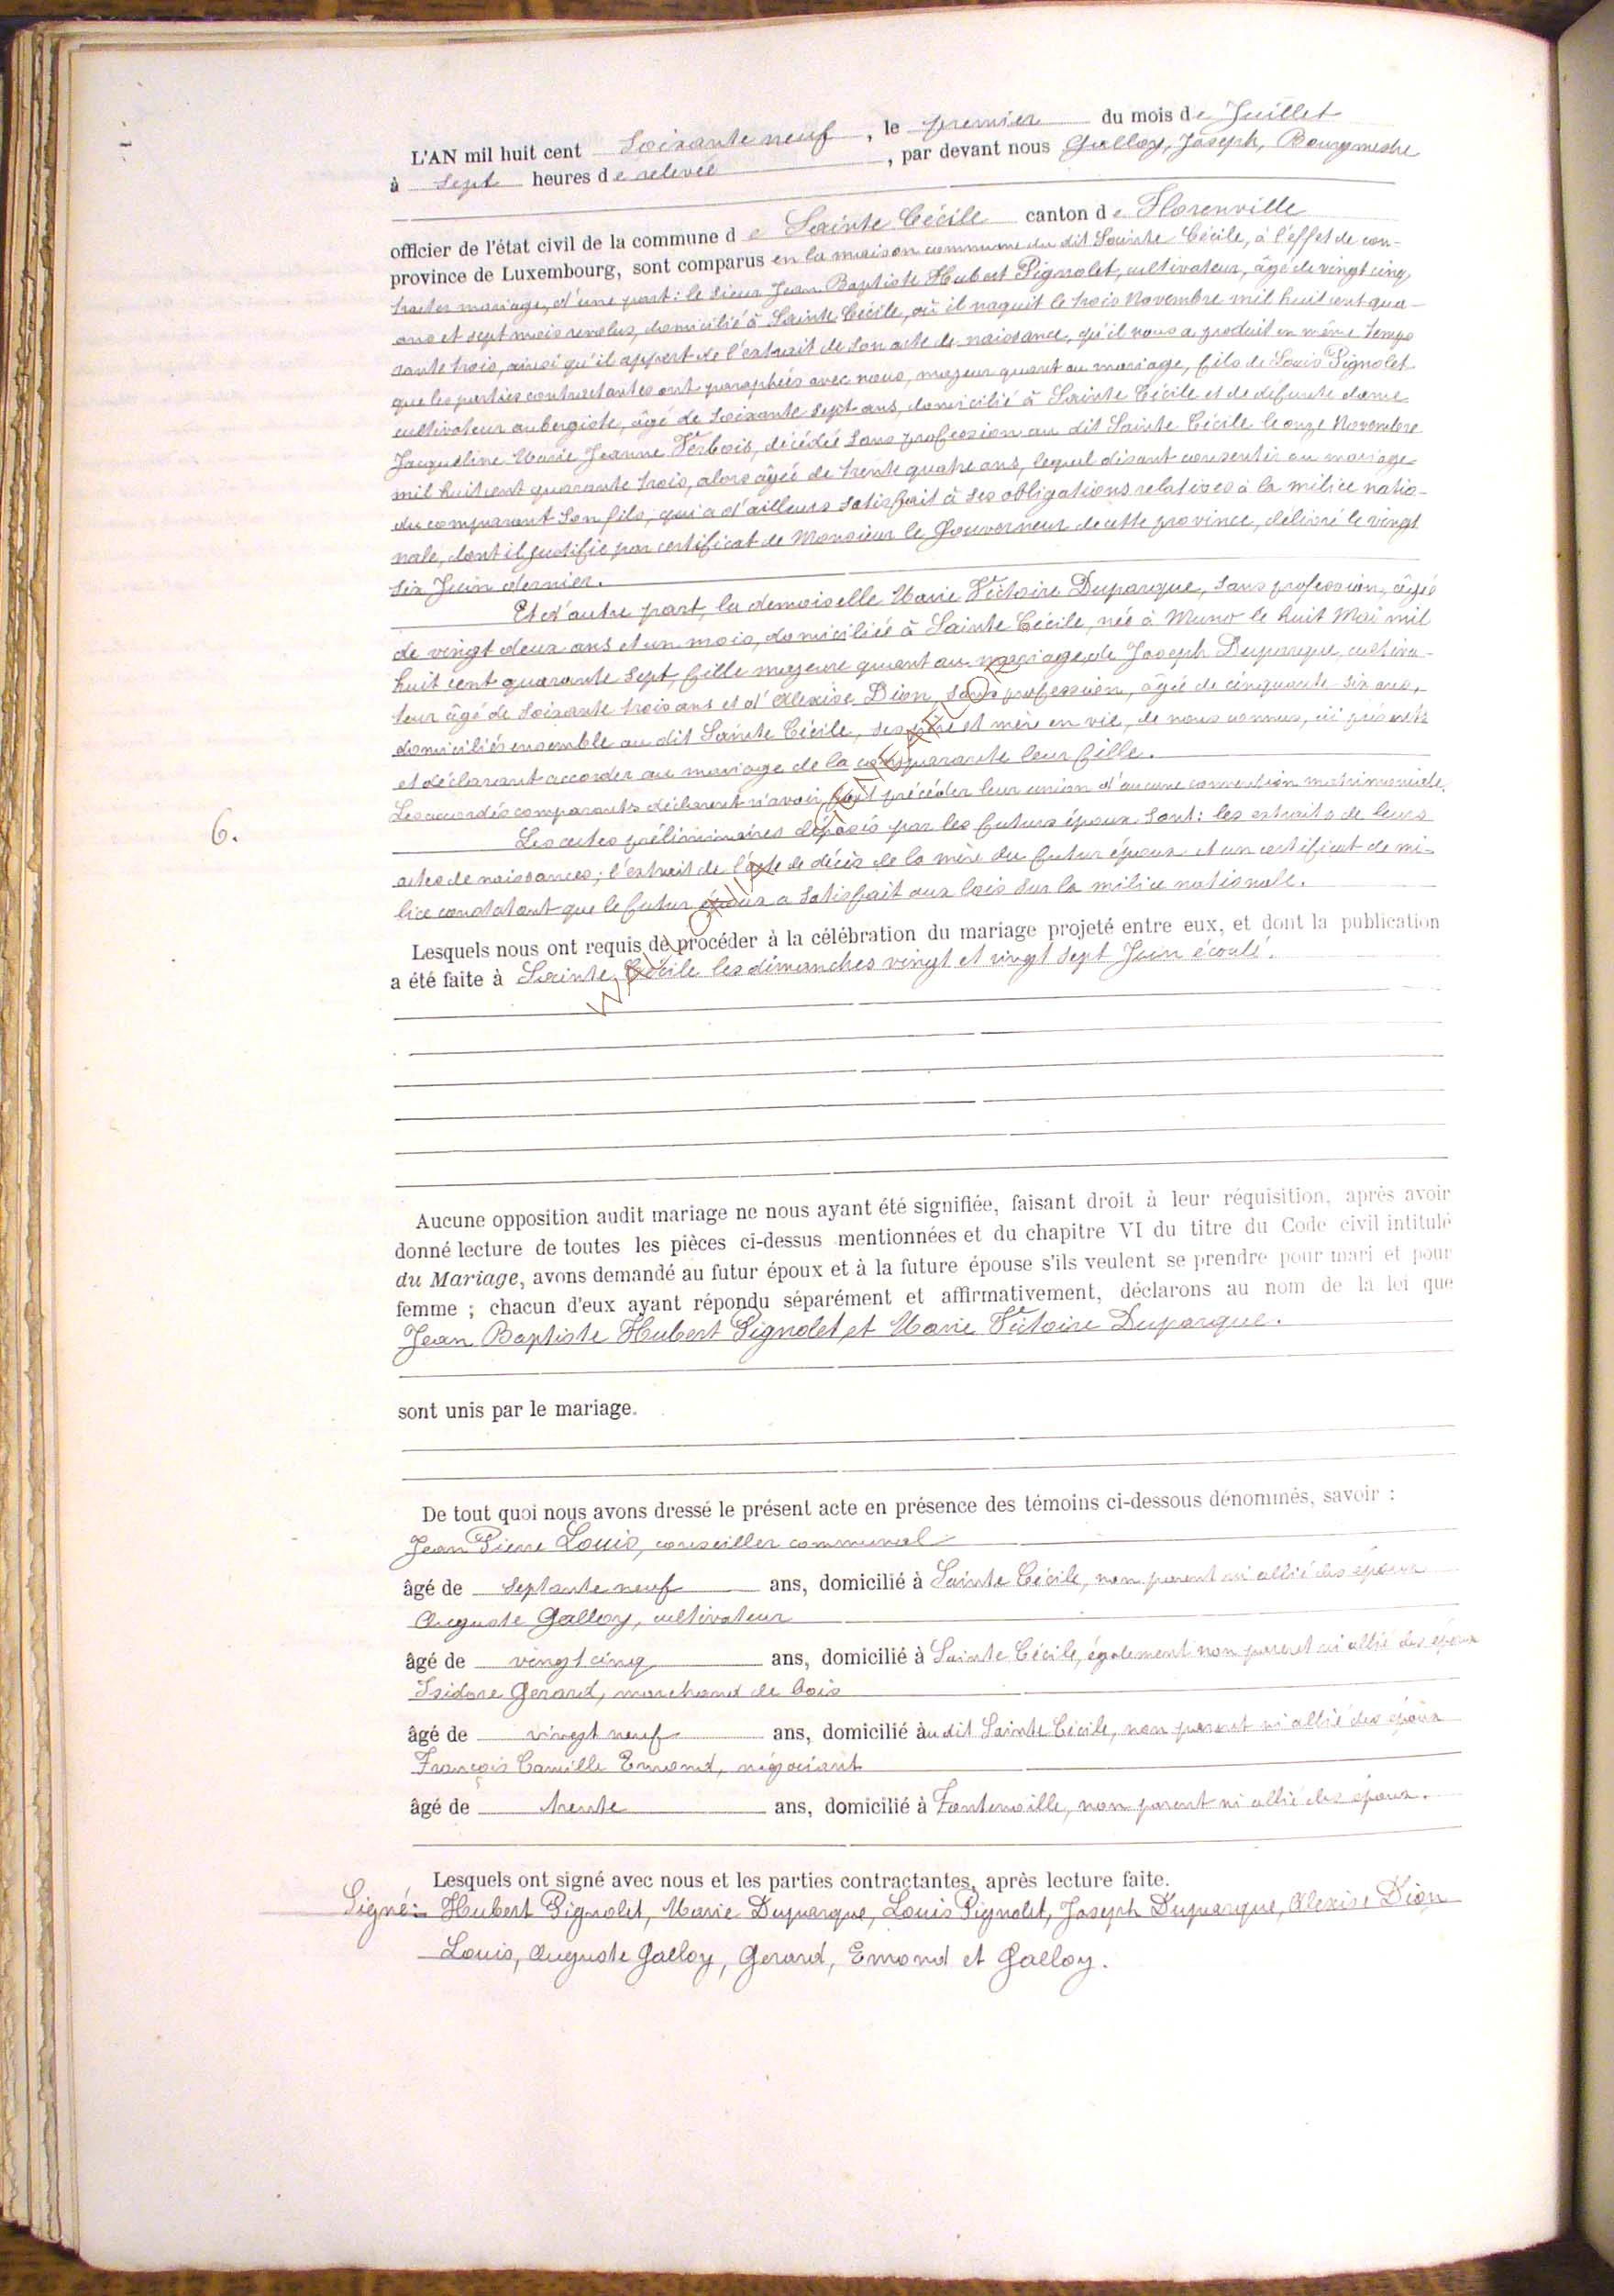 L'AN mil huit cent Soixante neuf, le premier du mois de Juillet
à Sept heures de relevée, par devant nous Galloy, Joseph, Bourgmestre
officier de l'état civil de la commune de Sainte Cécile canton de Florenville
province de Luxembourg, sont comparus en la maison commune du dit Sainte Cécile, à l'effet de con-
tracter mariage, d'une part: le Sieur Jean Baptiste Hubert Pignolet, cultivateur, âgé de vingt cinq
ans et sept mois révolus, domicilié à Sainte Cécile, où il naquit le trois Novembre mil huit cent qua-
rante trois, ainsi qu'il appert de l'extrait de son acte de naissance, qu'il nous a produit en même temps
que les parties contractantes ont paraphées avec nous, majeur quant au mariage, fils de Louis Pignolet
cultivateur aubergiste, âgé de Soixante Sept ans, domicilié à Sainte Cécile et de défunte dame
Jacqueline Marie Jeanne Verbois, décédée sans profession au dit Sainte Cécile le onze Novembre
mil huit cent quarante trois, alors âgée de trente quatre ans, lequel disant consentir au mariage
du comparant Son fils, qui a d'ailleurs satisfait à ses obligations relatives à la milice natio-
nale, dont il justifie par certificat de Monsieur le Gouverneur de cette province, délivré le vingt
six Juin dernier.
Et d'autre part, la demoiselle Marie Victoire Duparque, sans profession, âgée
de vingt deux ans et un mois, domiciliée à Sainte Cécile, née à Muno le huit Mai mil
huit cent quarante Sept, fille majeure quant au mariage, de Joseph Duparque, cultiva-
teur âgé de Soixante trois ans et d'Alexise Dion, sans profession, âgée de cinquante-six ans,
domiciliés ensemble au dit Sainte Cécile, ses père et mère en vie, de nous connus, ici présents
et déclarant accorder au mariage de la comparante leur fille.
Les accordés comparants déclarent n'avoir fait précéder leur union d'aucune convention matrimoniale.
6.
Les actes préliminaires déposés par les futurs époux sont: les extraits de leurs
actes de naissances; l'extrait de l'acte de décès de la mère du futur époux et un certificat de mi-
lice constatant que le futur époux a satisfait aux lois sur la milice nationale.
Lesquels nous ont requis de procéder à la célébration du mariage projeté entre eux, et dont la publication
a été faite à Sainte Cécile les dimanches vingt et vingt Sept Juin écoulé.
Aucune opposition audit mariage ne nous ayant été signifiée, faisant droit à leur réquisition, après avoir
donné lecture de toutes les pièces ci-dessus mentionnées et du chapitre VI du titre du Code civil intitulé
du Mariage, avons demandé au futur époux et à la future épouse s'ils veulent se prendre pour mari et pour
femme ; chacun d'eux ayant répondu séparément et affirmativement, déclarons au nom de la loi que
Jean Baptiste Hubert Pignolet et Marie Victoire Duparque.
sont unis par le mariage.
De tout quoi nous avons dressé le présent acte en présence des témoins ci-dessous dénommés, savoir :
Jean Pierre Louis, conseiller communal
âgé de Septante neuf ans, domicilié à Sainte Cécile, non parent ni allié des époux
Auguste Galloy, cultivateur
âgé de vingt cinq ans, domicilié à Sainte Cécile, également non parent ni allié des époux
Isidore Gerard, marchand de bois
âgé de vingt neuf ans, domicilié àu dit Sainte Cécile, non parent ni allié des époux
François Camille Emond, négociant
âgé de trente ans, domicilié à Fontenoille, non parent ni allié des époux.
Lesquels ont signé avec nous et les parties contractantes, après lecture faite.
Signé: Hubert Pignolet, Marie Duparque, Louis Pignolet, Joseph Duparque, Alexise Dion
Louis, Auguste Galloy, Gerard, Emond et Galloy.